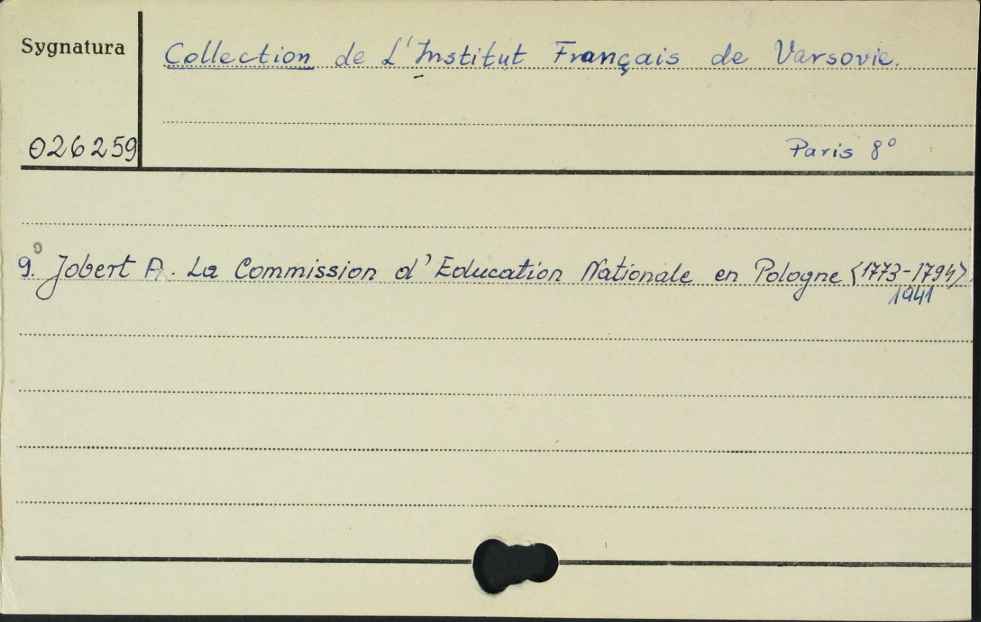 Sygnatura
Collection de L'Institut Français de Varsovie.
026259
Paris 8°
9.° Jobert A. La Commission d'Education Nationale en Pologne <1773-1794>.
1941